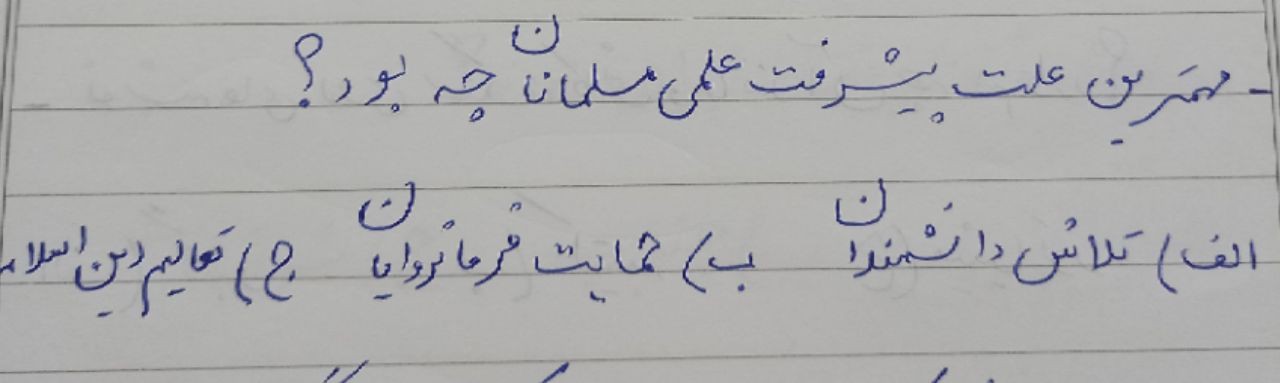 - مهمترین علت پیشرفت علمی مسلمانان چه بود؟
الف) تلاش دانشمندان ب) حمایت فرمانروایان ج) تعالیم دین اسلام